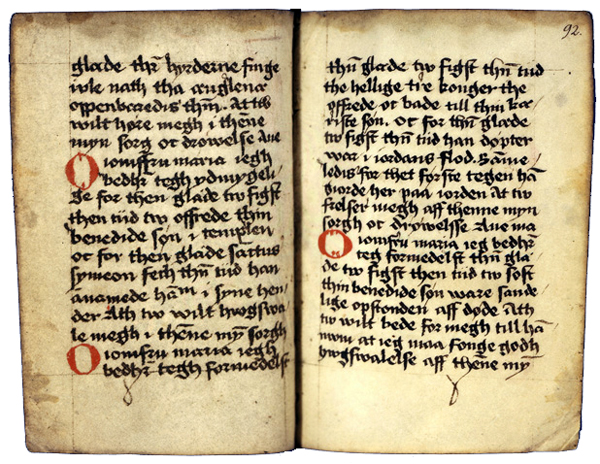 glæde thr̄ hyrderne finge
iule nath tha ænglenæ
oppenbaredis thm̄. At tw
wilt høre megh i thēne
myn sorg oc drowelse Aue
O iomffru maria iegh
bedhr̄ tegh ydmygeli/
ge for then glæde tw figst
then tiid tw offrede thin
benedide søn i templen
oc for then glæde sanctus
symeon fech thn̄ tiid han
anamede ham̄ i syne hen/
der Ath tw wilt hugswa
le megh i thēne my̅ sorgh
O iomfru maria iegh
bedhr̄ tegh formedelst
92.
thn̄ glæde tw figst thn̄ tiid
the hellige tre konger the
offrede oc bade till thin kæ/
riste søn. oc for thn̄ glæde
tw figst thn̄ tiid han døpter
war i iordans flod. Sāme/
ledis for thet første tegen hā
giorde her paa iorden At tw
frælser megh aff thenne myn
sorgh oc drowelsse Aue ma
O iomfru maria ieg bedhr̄
teg formedelst thn̄ glæ/
de tw figst then tiid tw soft
thin benedide søn ware sande/
lige opstonden aff døde Ath
tw wilt bede for megh till hā/
nom at ieg maa fonge godh
hwgswalelse aff thēne my̅